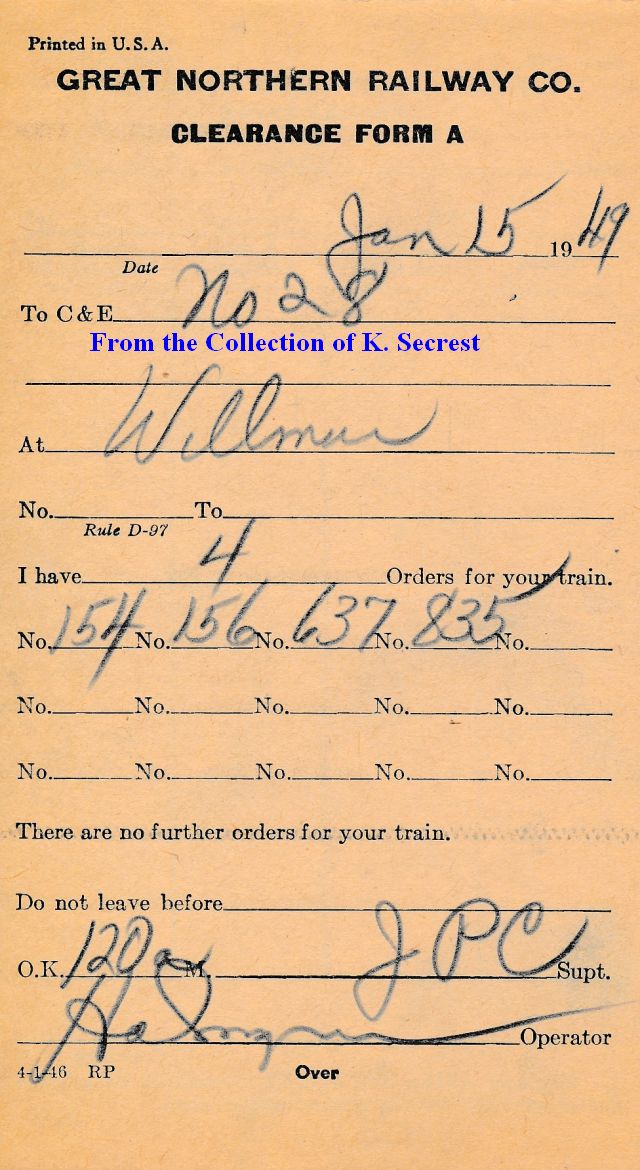 Printed in U.S.A.
GREAT NORTHERN RAILWAY CO.
CLEARANCE FORM A
Jan 15 1949
Date
To C & E No 28
From the Collection of K. Secrest
At Willmar
No. To
Rule D-97
I have 4 Orders for your train.
No. 154 No. 156 No. 637 No. 835 No.
No. No. No. No. No.
No. No. No. No. No.
There are no further orders for your train.
Do not leave before
O.K. 120 a M. JPC Supt.
Operator
4-1-46 RP Over